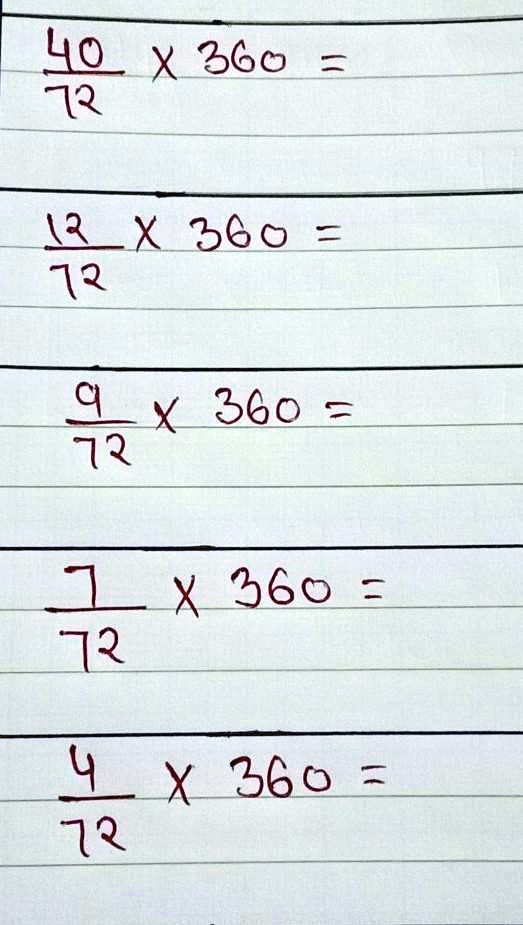 40/72 × 360 =
12/72 × 360 =
9/72 × 360 =
7/72 × 360 =
4/72 × 360 =